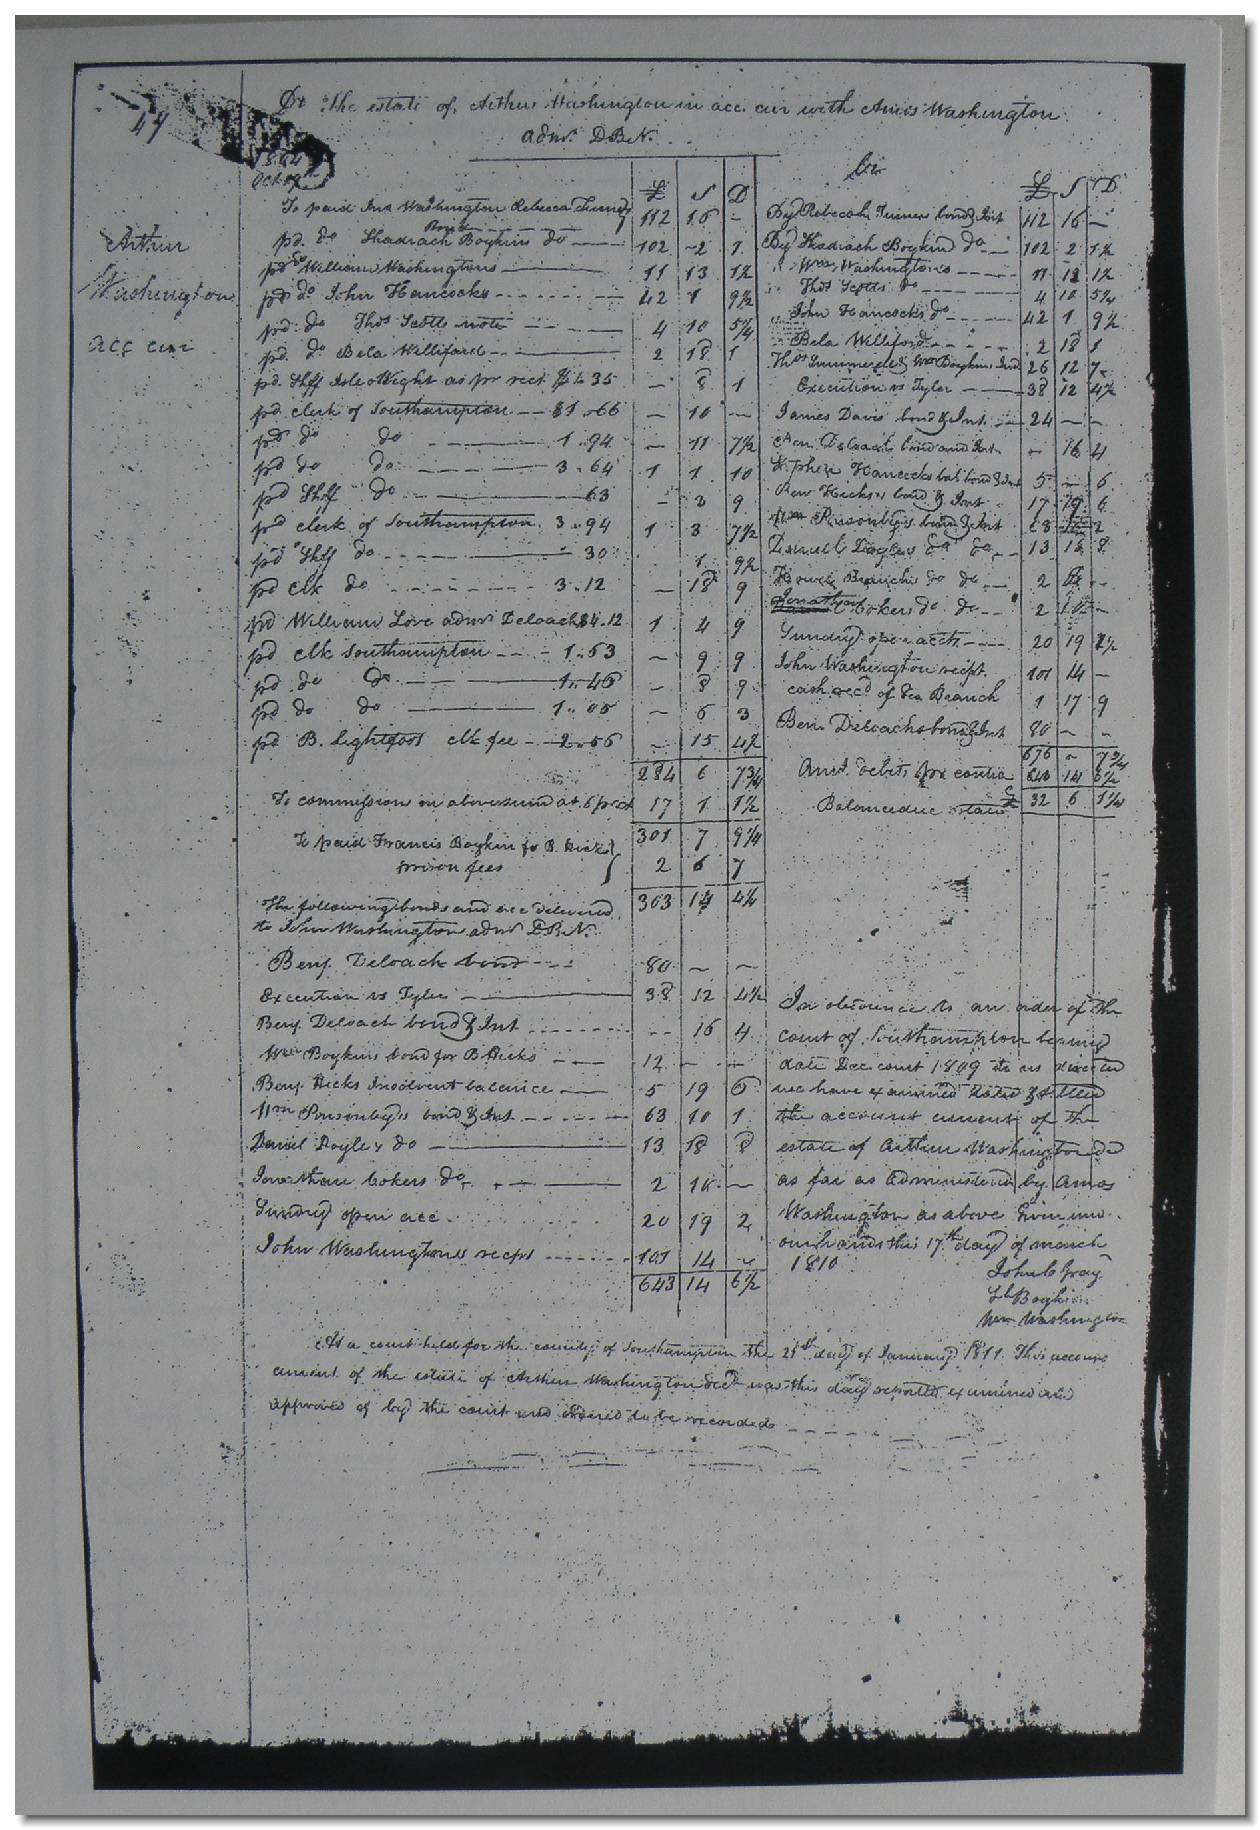 Dr The estate of Arthur Washington in acc. cur with Amos Washington
adm.r D.B.N.
49
1804
Arthur
Washington
acc cur
£ S D
To paid Jno Washington Rebecca Turners 112 16 –
Bond
pd. do Shadrach Boykins do 102 – 2 1
pd do William Washingtons 11 13 1½
pd do John Hancocks 42 1 9½
pd. do Thos Scotts note 4 10 5¼
pd. do Bela Williford 2 18 1
pd. Shff Isle of Wight as pr rect $1.35 – 8 1
pd clerk of Southampton $1.66 – 10 –
pd do do 1.94 – 11 7½
pd do do 3.64 1 1 10
pd Shff do 63 – 3 9
pd clerk of Southampton 3.94 1 3 7½
pd Shff do 30 1 9½
pd clk do 3.12 – 18 9
pd William Love admr Deloach $4.12 1 4 9
pd clk Southampton 1.63 – 9 9
pd do do 1.46 – 8 9
pd do do 1.05 – 6 3
pd B. Lightfoot clk fee 2.56 – 15 4½
284 6 7¾
To commission on above sum at 6 pr ct 17 1 1½
301 7 9¼
To paid Francis Boykin for B. Hicks 2 6 7
prison fees
303 14 4¼
The following bonds and acc delivered
to John Washington admr D.B.N.
Benj. Deloach bond 80 – –
Execution vs Tyler 38 12 4½
Benj. Deloach bond & Int – 16 4
Wm Boykins bond for B Hicks 12 – –
Benj. Hicks Insolvent balance 5 19 6
Wm Ponsonbys bond & Int 63 10 1
Daniel Doyles do 13 18 8
Jonathan Cokers do 2 10 –
Sundry open acc 20 19 2
John Washingtons recpt 101 14 –
643 14 6½
Cr
£ S D
By Rebecah Turners bond & Int 112 16 –
By Shadrach Boykins do 102 2 1½
Wm Washingtons 11 13 1½
Thos Scotts do 4 10 5¼
John Hancocks do 42 1 9½
Bela Williford 2 18 1
Wm Boykins Ind 26 12 7
Execution vs Tyler 38 12 4½
James Davis bond & Int 24 – –
Deloach bond and Int – 16 4
Hancocks bal bond & Int 5 – 6
Hicks bond & Int 17 19 6
Wm Ponsonbys bond & Int
Daniel Doyles do do 13 18 8
Branchs do do 2
Jonathan Cokers do do 2 10 –
Sundry open accts 20 19
John Washington recipt 101 14 –
cash recd of Branch 1 17 9
Ben. Deloachs bond & Int 80 – –
676 – 7¾
Amt. debits pr contra
Balance due estate £ 32 6 1¼
In obedience to an order of the
court of Southampton bearing
date Dec court 1809 to us directed
we have examined stated & settled
the account current of the
estate of Arthur Washington dd
as far as administered by Amos
Washington as above Given under
our hands this 17th day of march
1810
John C Gray
Boykin
Wm Washington
At a court held for the county of Southampton the 21st day of January 1811. This account
current of the estate of Arthur Washington decd was this day returned examined and
approved of by the court and ordered to be recorded